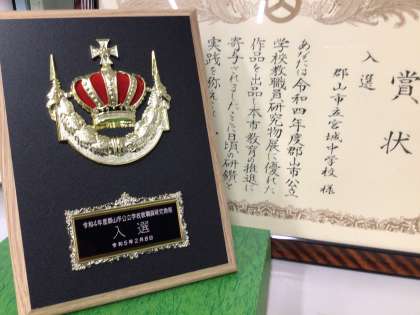 令和4年度郡山市公立学校教職員研究物展
入選
令和5年2月8日
賞状
入選
郡山市立宮城中学校 様
あなたは令和四年度郡山市公立
学校教職員研究物展に優れた
作品を出品し本市教育の推進に
寄与されました ここに日頃の研鑽と
実践を称え